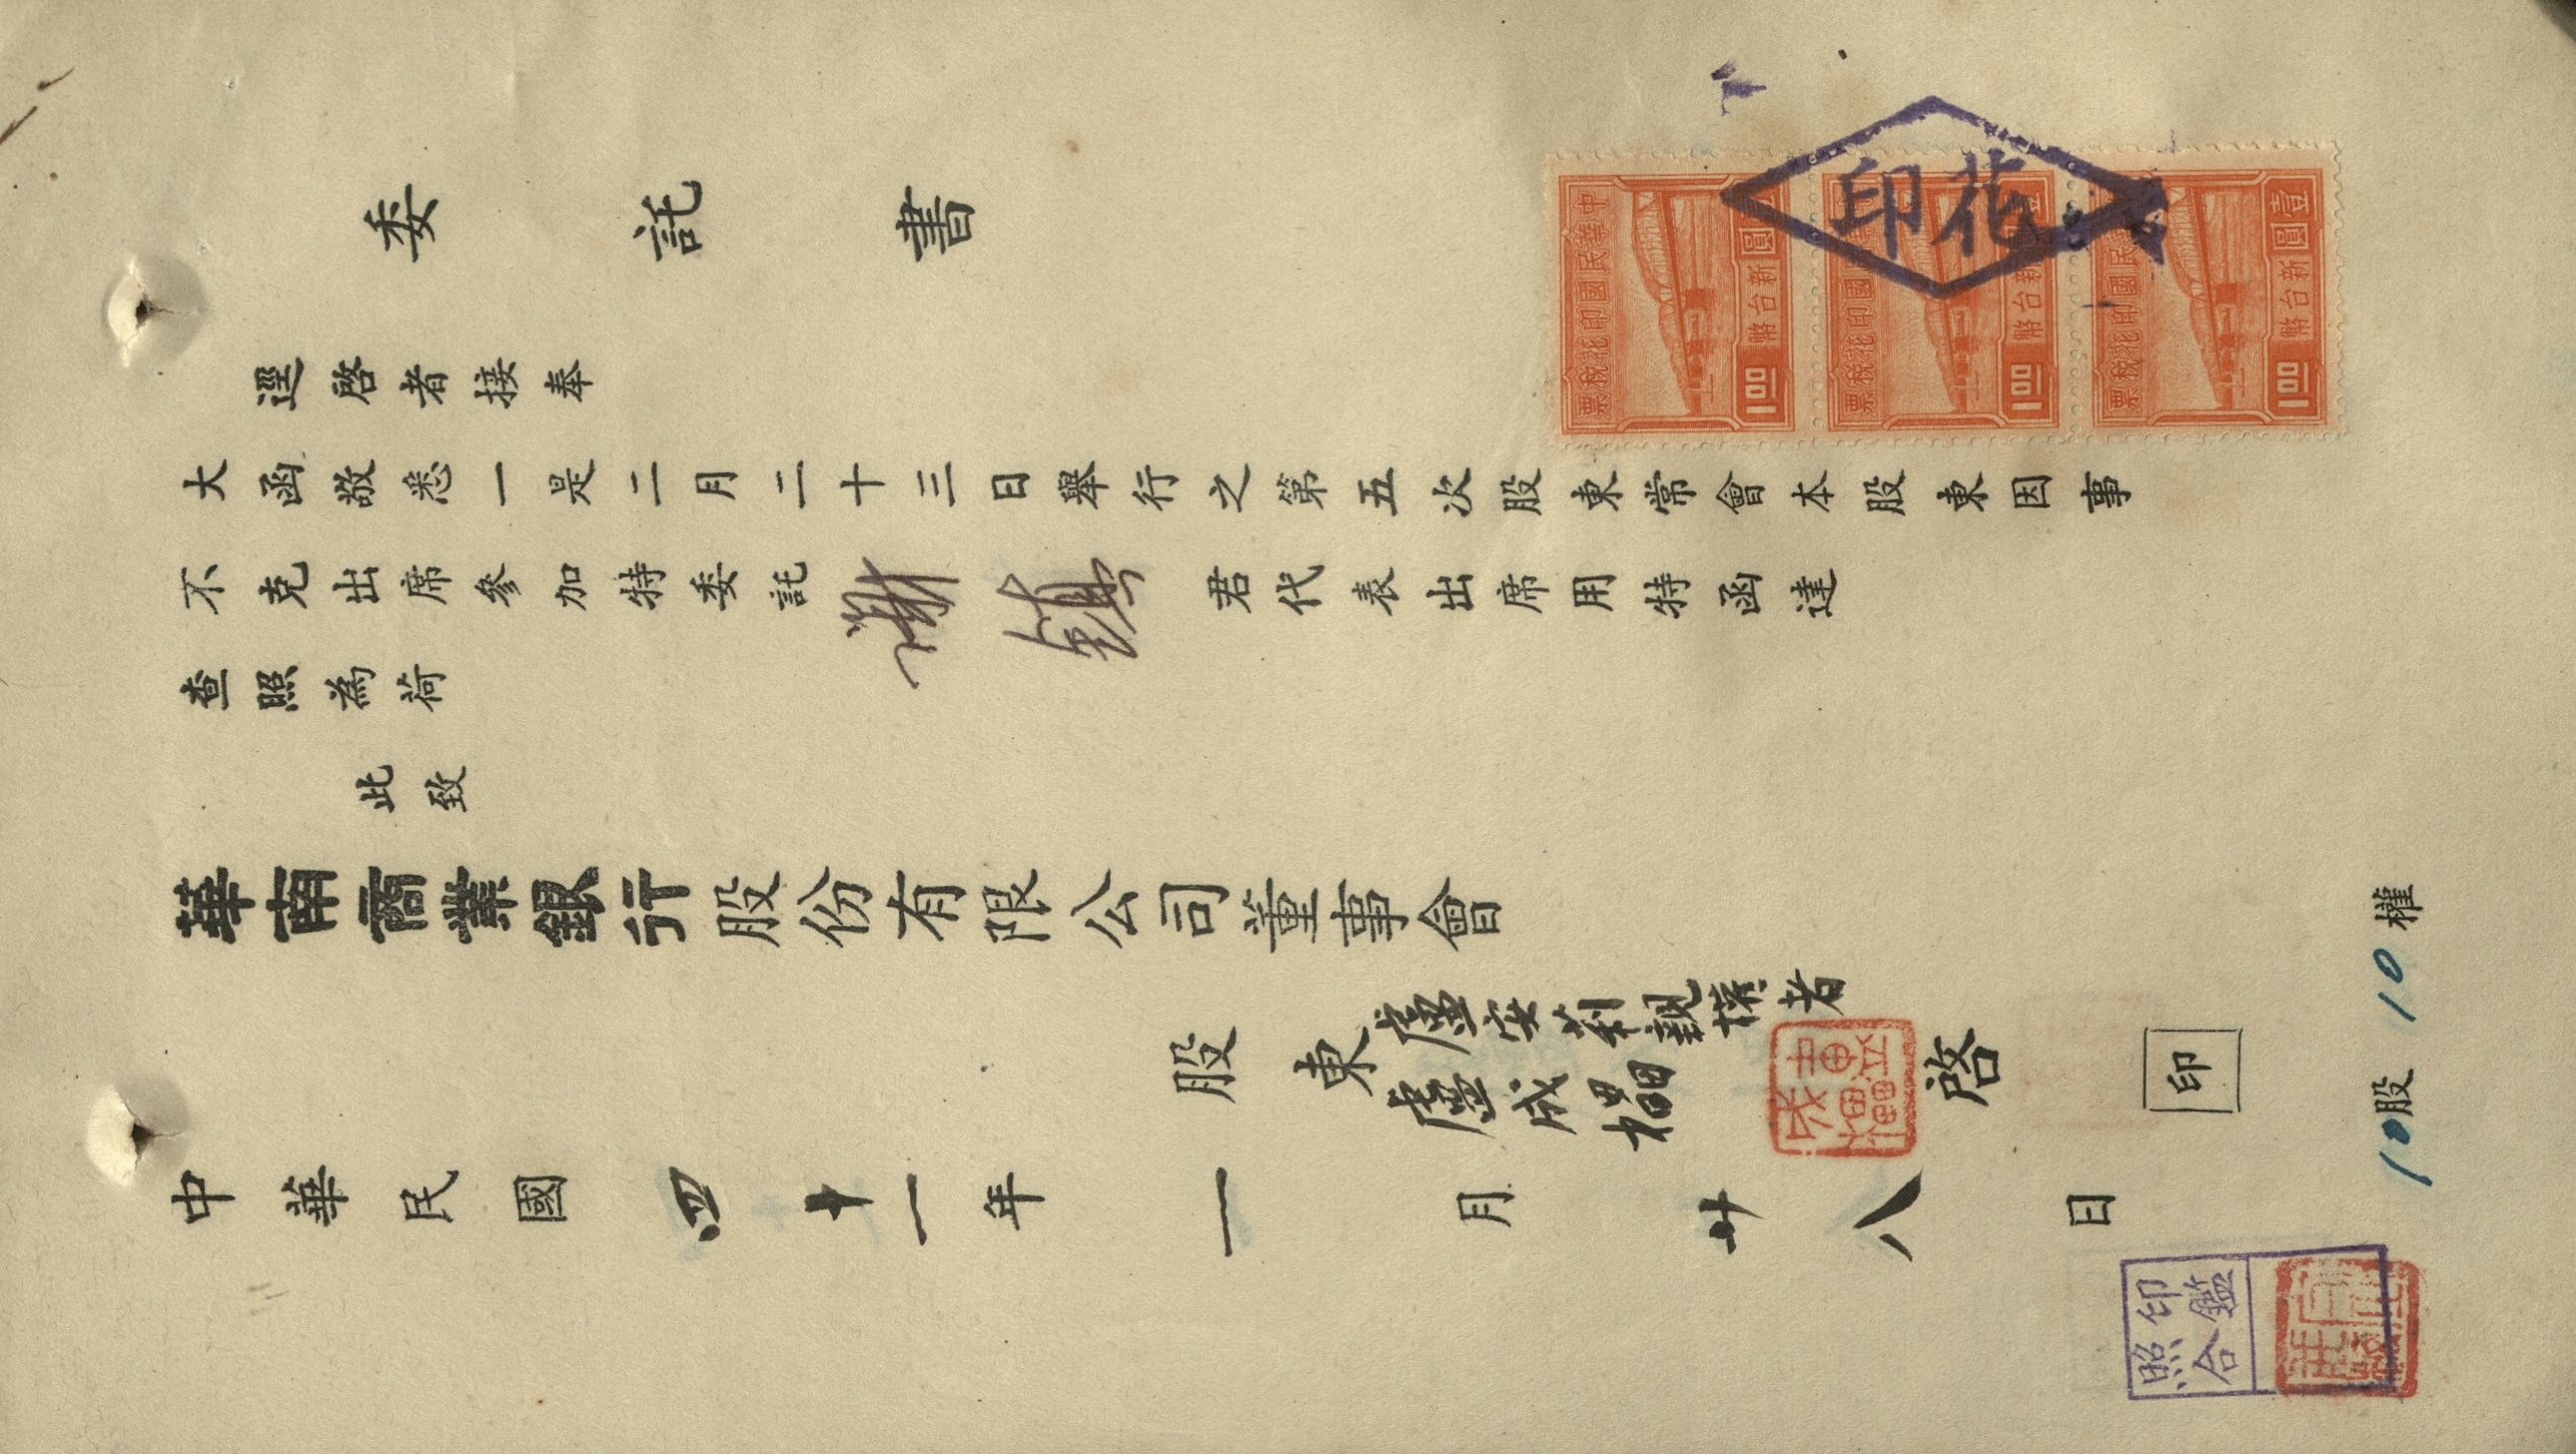 委託書
逕啓者接奉
大函敬悉一是二月二十三日舉行之第五次股東常會本股東因事
不克出席參加特委託謝鎮君代表出席用特函達
查照為荷
此致
華南商業銀行股份有限公司董事會
股東盧安莿親權者
盧成榅啓
印
中華民國四十一年一月廿八日
10股10權
中華民國印花稅票
壹圓新台幣
1.00
中華民國印花稅票
圓新台幣
1.00
中華民國印花稅票
壹圓新台幣
1.00
花印
印鑑
照合